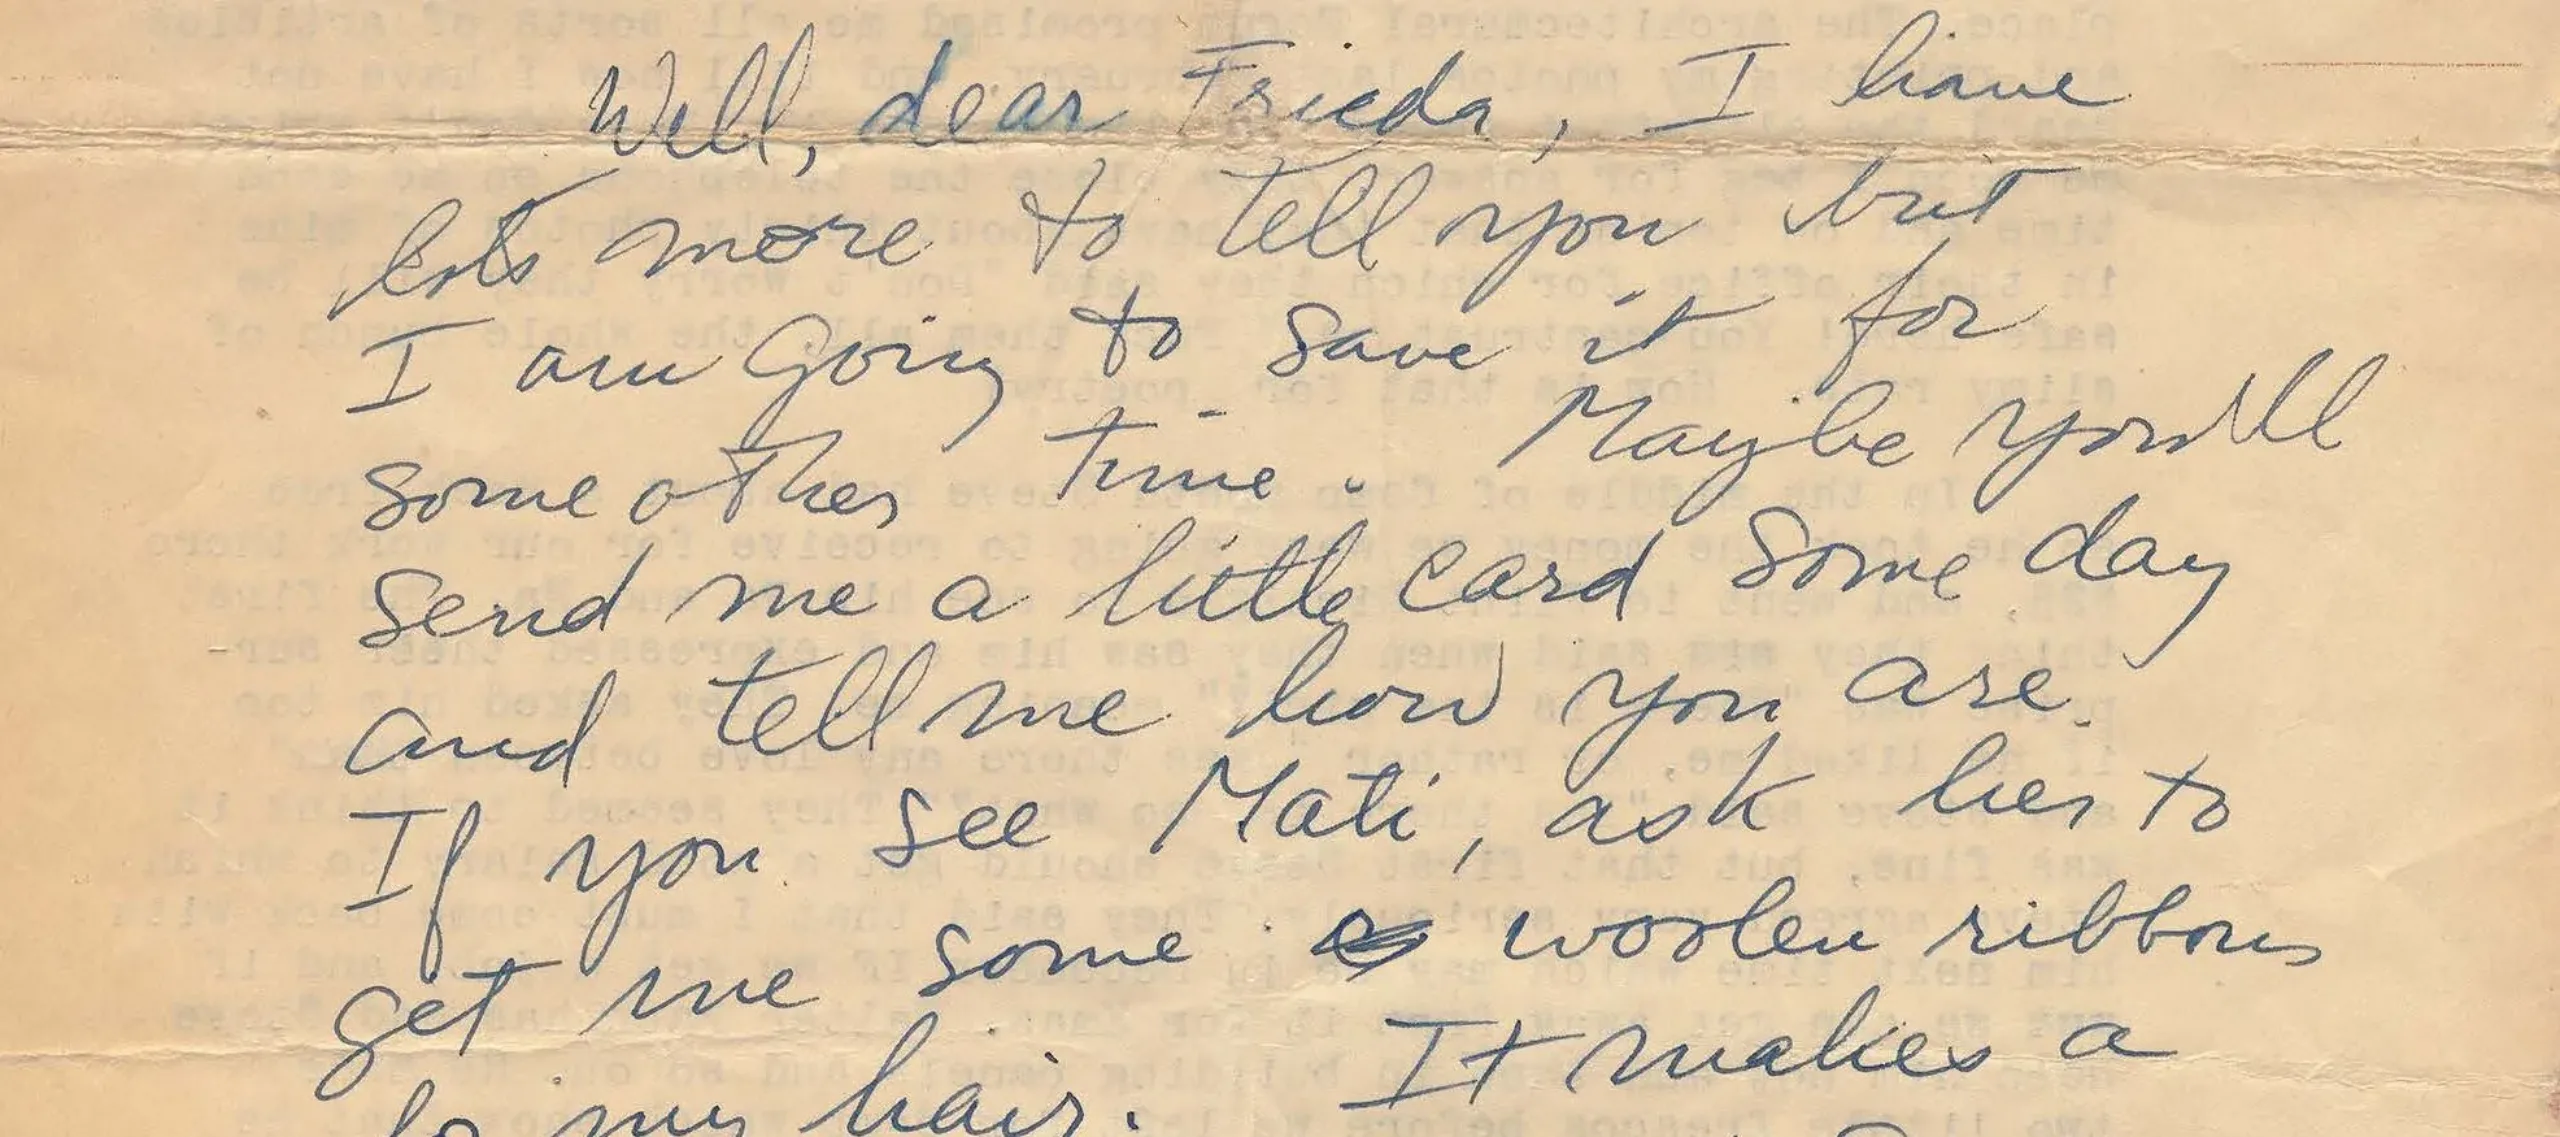 Well, dear Frieda, I have
lots more to tell you but
I am going to save it for
some other time. Maybe you'll
send me a little card some day
and tell me how you are.
If you see Mati, ask her to
get me some woolen ribbons
fo my hair. It makes a